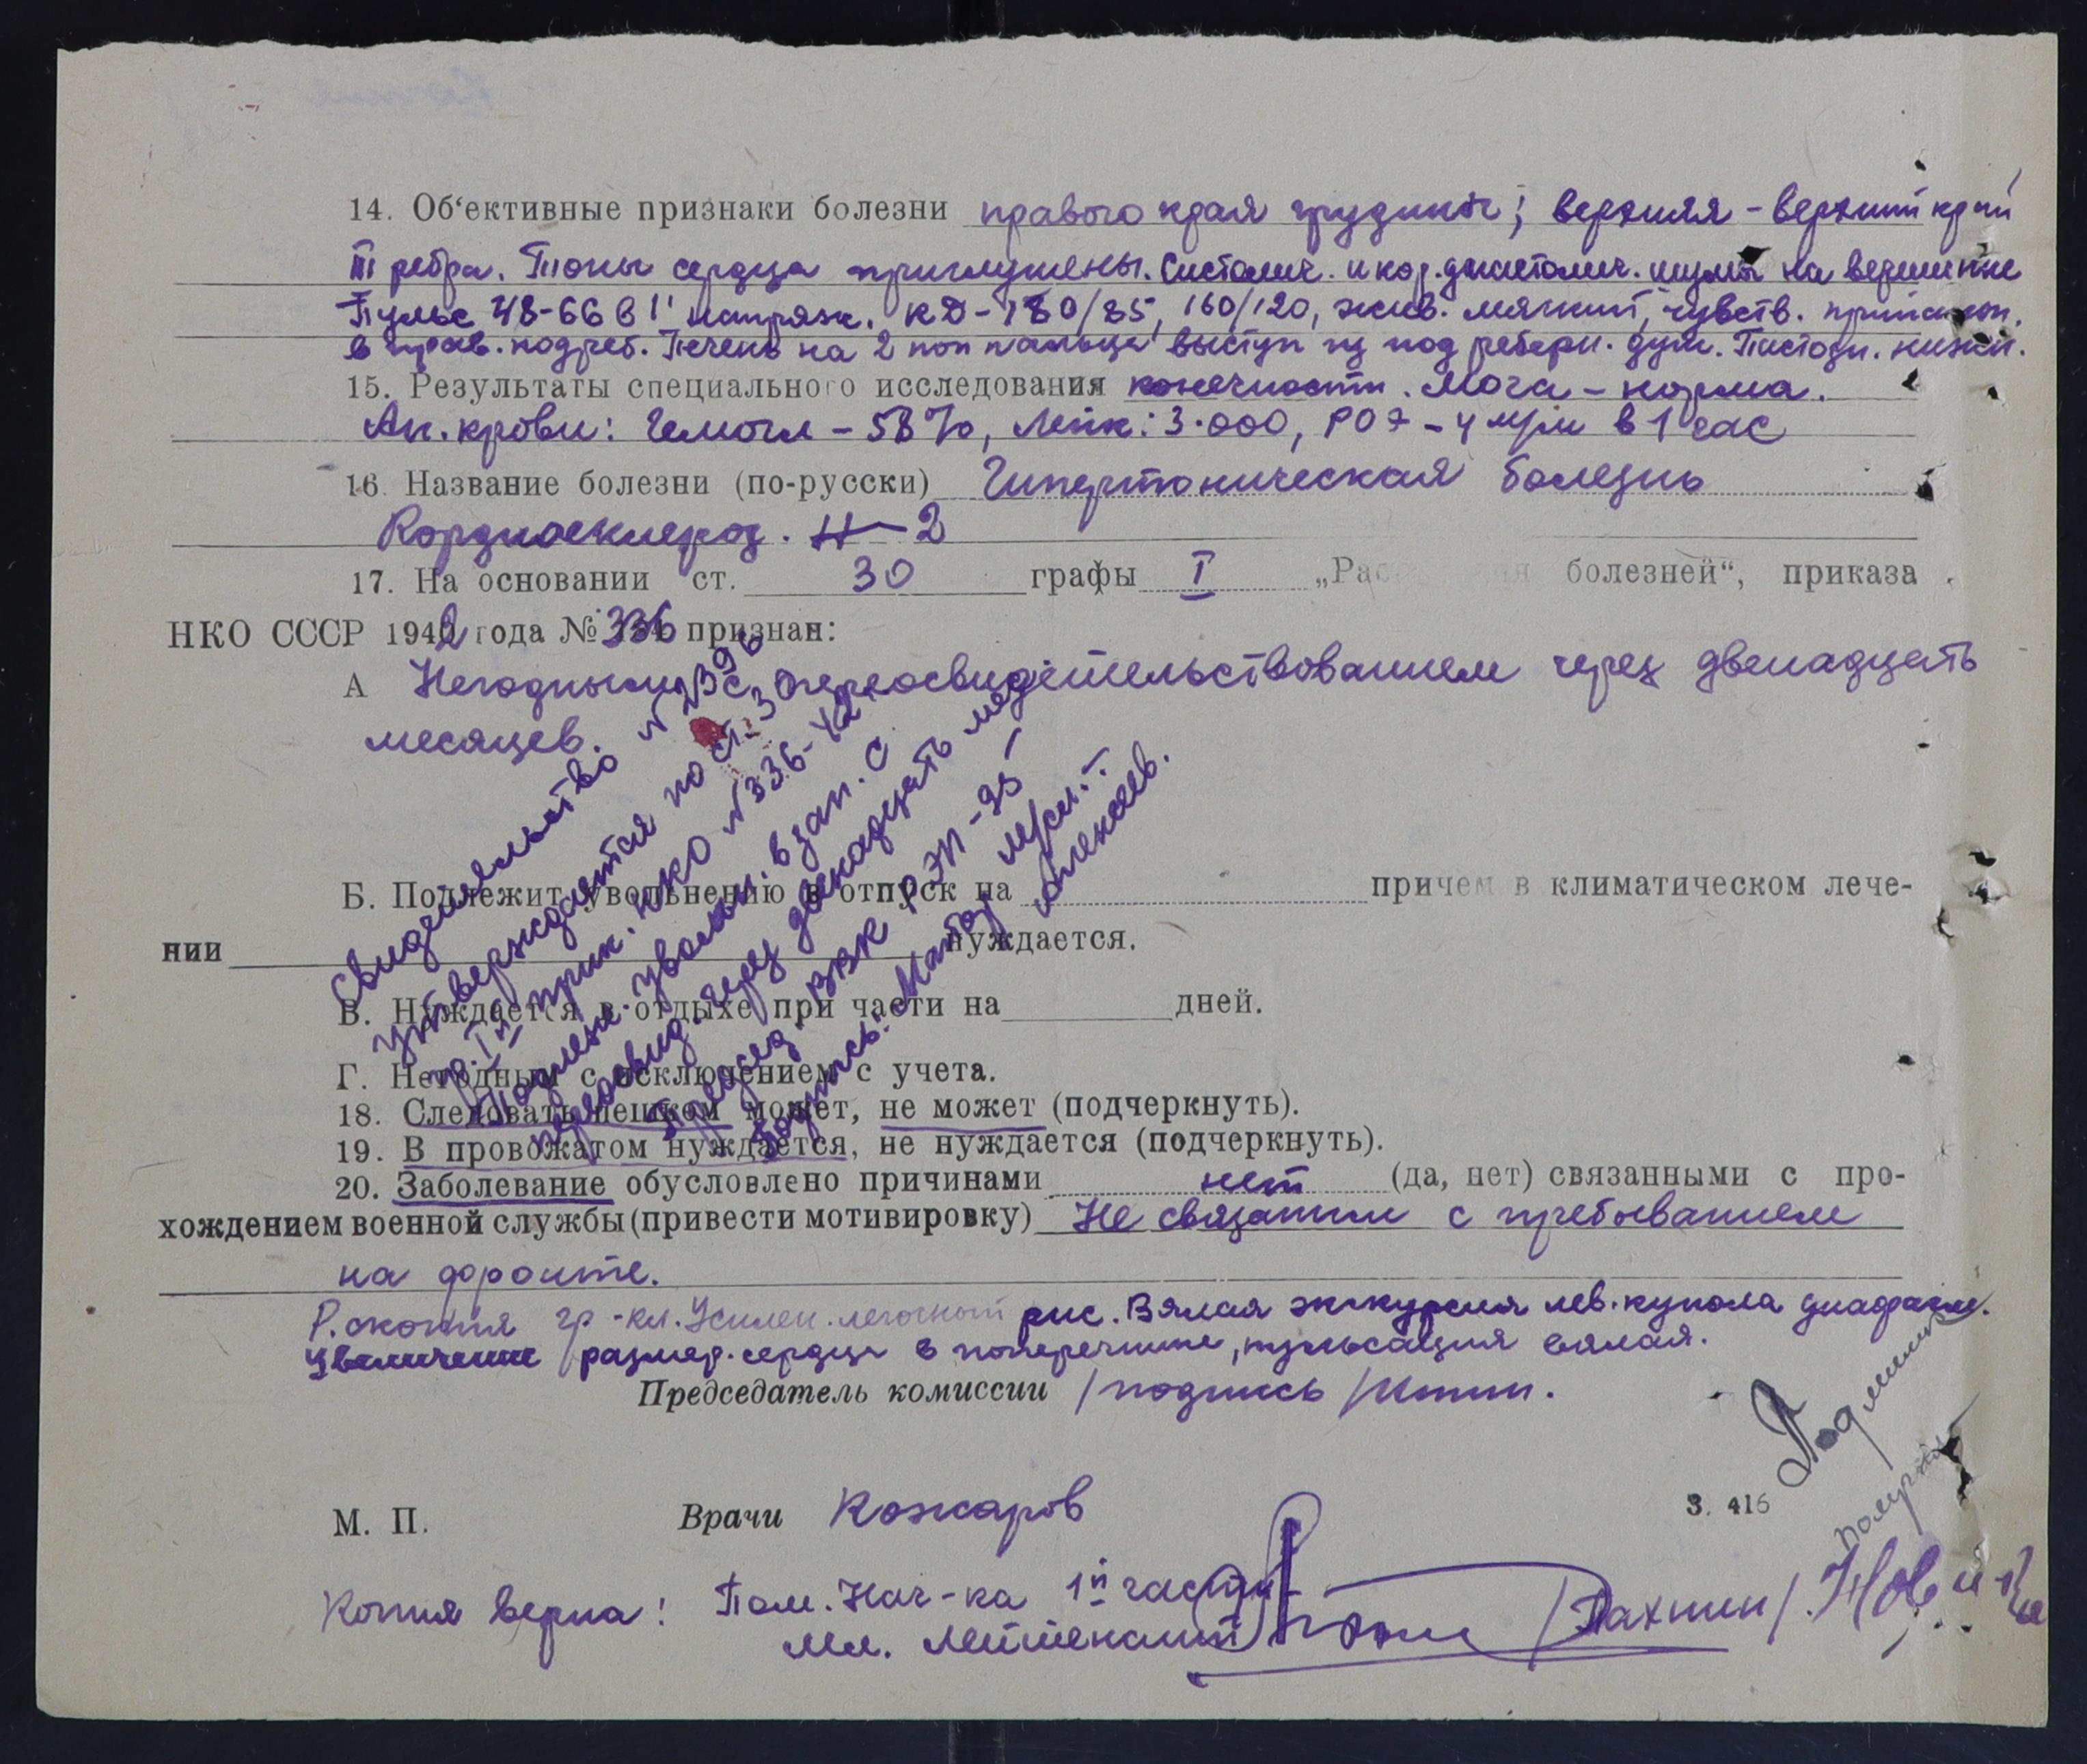 14. Об‘ективные признаки болезни правого края грудины; верхняя – верхний край
III ребра. Тоны сердца приглушены. Систолич. и кор. диастолич. шумы на верхушке
Пульс 48-66 в 1' напряж. КД – 180/85, 160/120, жив. мягкий, чувств. при
в прав. подреб. Печень на 2 поп пальца выступ из под реберн. дуги. Пастозн. нижн.
15. Результаты специального исследования конечности. Моча – норма.
Ан. крови: Гемогл – 58%, Лейк: 3.000, РОЭ – 4 м/м в 1 час
16. Название болезни (по-русски) Гипертоническая болезнь
Кордиосклероз. Н–2
17. На основании ст. 30 графы I „Рас болезней“, приказа
НКО СССР 1942 года № 336 признан:
А Негодным с переосвидетельствованием через двенадцать
месяцев.
Свидетельство № 2396
утверждается по ст. 30
гр. I прик. НКО № 336-42
Подлежи. увольн. в зап. с
переосвид. через двенадцать мес.
Председ. ВВК РЭП-95
Подпись: Майор м/сл.
Алексеев.
Б. Подлежит увольнению в отпуск на причем в климатическом лече-
нии нуждается.
В. Нуждается в отдыхе при части на дней.
Г. Негодным с исключением с учета.
18. Следовать пешком может, не может (подчеркнуть).
19. В провожатом нуждается, не нуждается (подчеркнуть).
20. Заболевание обусловлено причинами нет (да, нет) связанными с про-
хождением военной службы (привести мотивировку) Не связанни с пребыванием
на фронте.
Р. скопия гр-кл. Усилен. легочный рис. Вялая экскурсия лев. купола диафрагм.
Увеличение размер. сердца в поперечнике, пульсация вялая.
Председатель комиссии /подпись/
М. П. Врачи Кожаров
З. 416
Подлинник
получил
Копия верна: Пом. Нач-ка 1й части
Мл. Лейтенант /Пахнин/